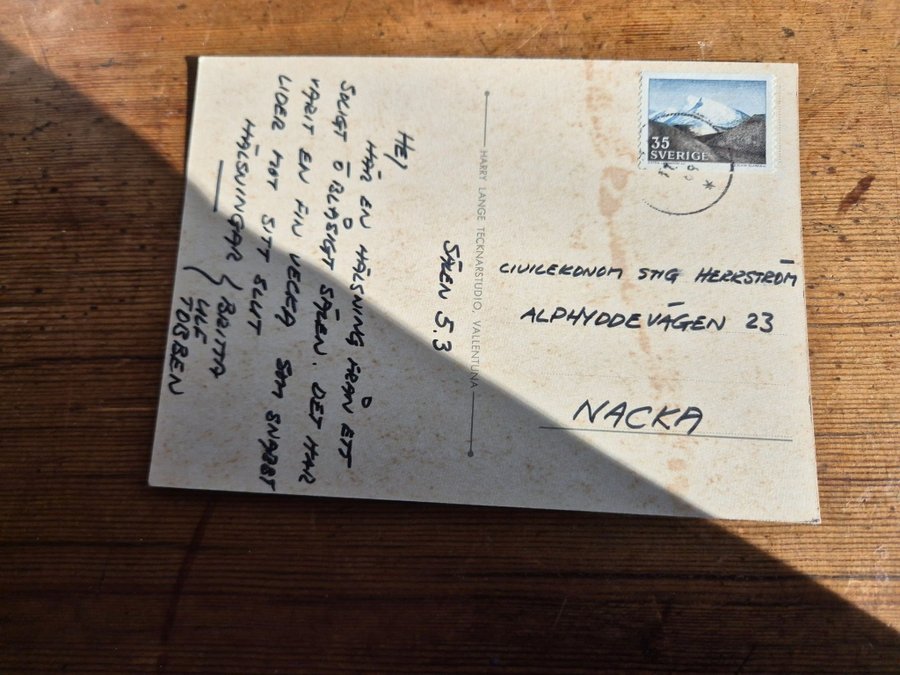 SÄLEN 5.3
HEJ
HÄR EN HÄLSNING FRÅN ETT
SOLIGT O BLÅSIGT SÄLEN. DET HAR
VARIT EN FIN VECKA SOM SNABBT
LIDER MOT SITT SLUT
HÄLSNINGAR { BRITTA
ULF
TOBBEN
HARRY LANGE TECKNARSTUDIO, VALLENTUNA
35
SVERIGE
CIVILEKONOM STIG HERRSTRÖM
ALPHYDDEVÄGEN 23
NACKA